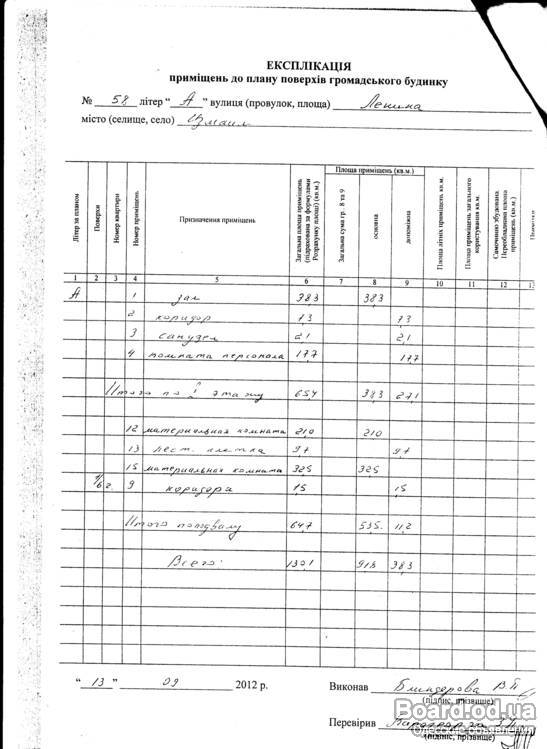 ЕКСПЛІКАЦІЯ
приміщень до плану поверхів громадського будинку
№ 58 літер “ А ” вулиця (провулок, площа) Ленина
місто (селище, село) Измаил
Літер за планом | Поверхи | Номер квартири | Номер приміщень | Призначення приміщень | Загальна площа приміщень (підрахована за формулами Розрахунку площ) (кв.м.) | Площа приміщень (кв.м.) | Загальна сума гр. 8 та 9 | основна | допоміжна | Площа літніх приміщень кв.м. | Площа приміщень загального користування кв.м. | Самочинно збудована, Переобладнана площа приміщень (кв.м.)
1 2 3 4 5 6 7 8 9 10 11 12 13
А 1 зал 38,3 38,3
2 коридор 7,3 7,3
3 санузел 2,1 2,1
4 комната персонала 17,7 17,7
Итого по 1 этажу 65,4 38,3 27,1
12 материальная комната 21,0 21,0
13 лест. клетка 9,7 9,7
15 материальная комната 32,5 32,5
9 коридора 1,5 1,5
Итого подвалу 64,7 53,5 11,2
Всего: 130,1 91,8 38,3
“ 13 ” 09 2012 р.
Виконав В.П
(підпис, прізвище)
Перевірив
(підпис, прізвище)
Board.od.ua
Одесские объявления